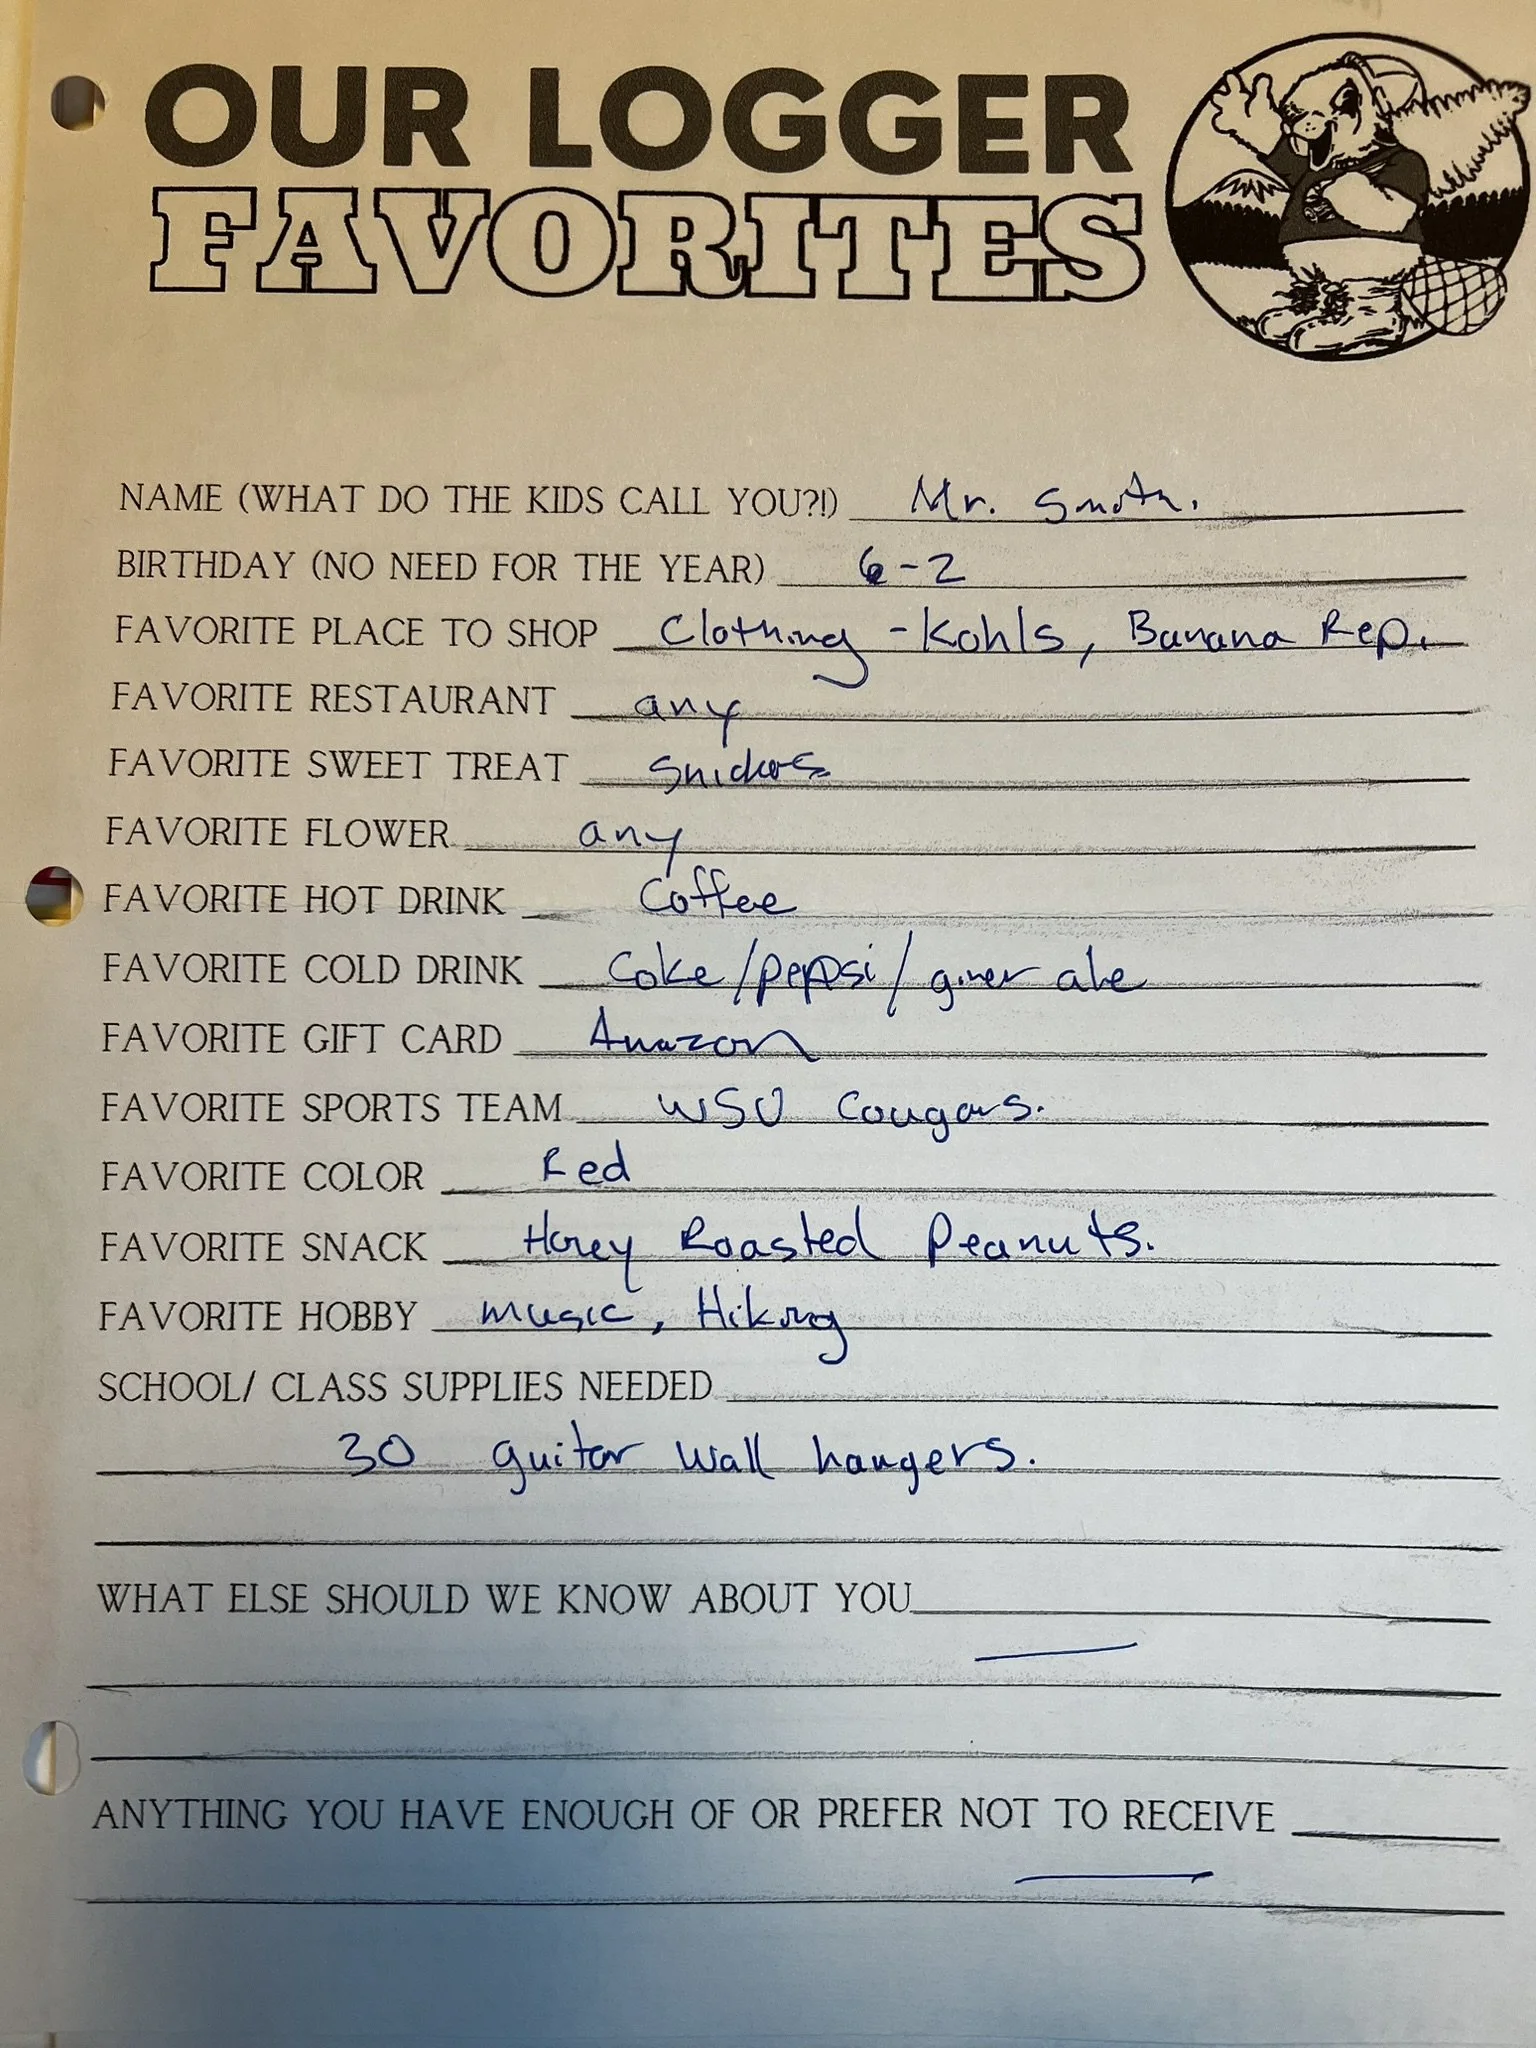 OUR LOGGER
FAVORITES
NAME (WHAT DO THE KIDS CALL YOU?!) Mr. Smith.
BIRTHDAY (NO NEED FOR THE YEAR) 6-2
FAVORITE PLACE TO SHOP Clothing - Kohls, Banana Rep.
FAVORITE RESTAURANT any
FAVORITE SWEET TREAT Snickers
FAVORITE FLOWER any
FAVORITE HOT DRINK Coffee
FAVORITE COLD DRINK Coke/pepsi/ginger ale
FAVORITE GIFT CARD Amazon
FAVORITE SPORTS TEAM WSU Cougars.
FAVORITE COLOR Red
FAVORITE SNACK Honey Roasted Peanuts.
FAVORITE HOBBY music, Hiking
SCHOOL/ CLASS SUPPLIES NEEDED
30 guitar wall hangers.
WHAT ELSE SHOULD WE KNOW ABOUT YOU
ANYTHING YOU HAVE ENOUGH OF OR PREFER NOT TO RECEIVE